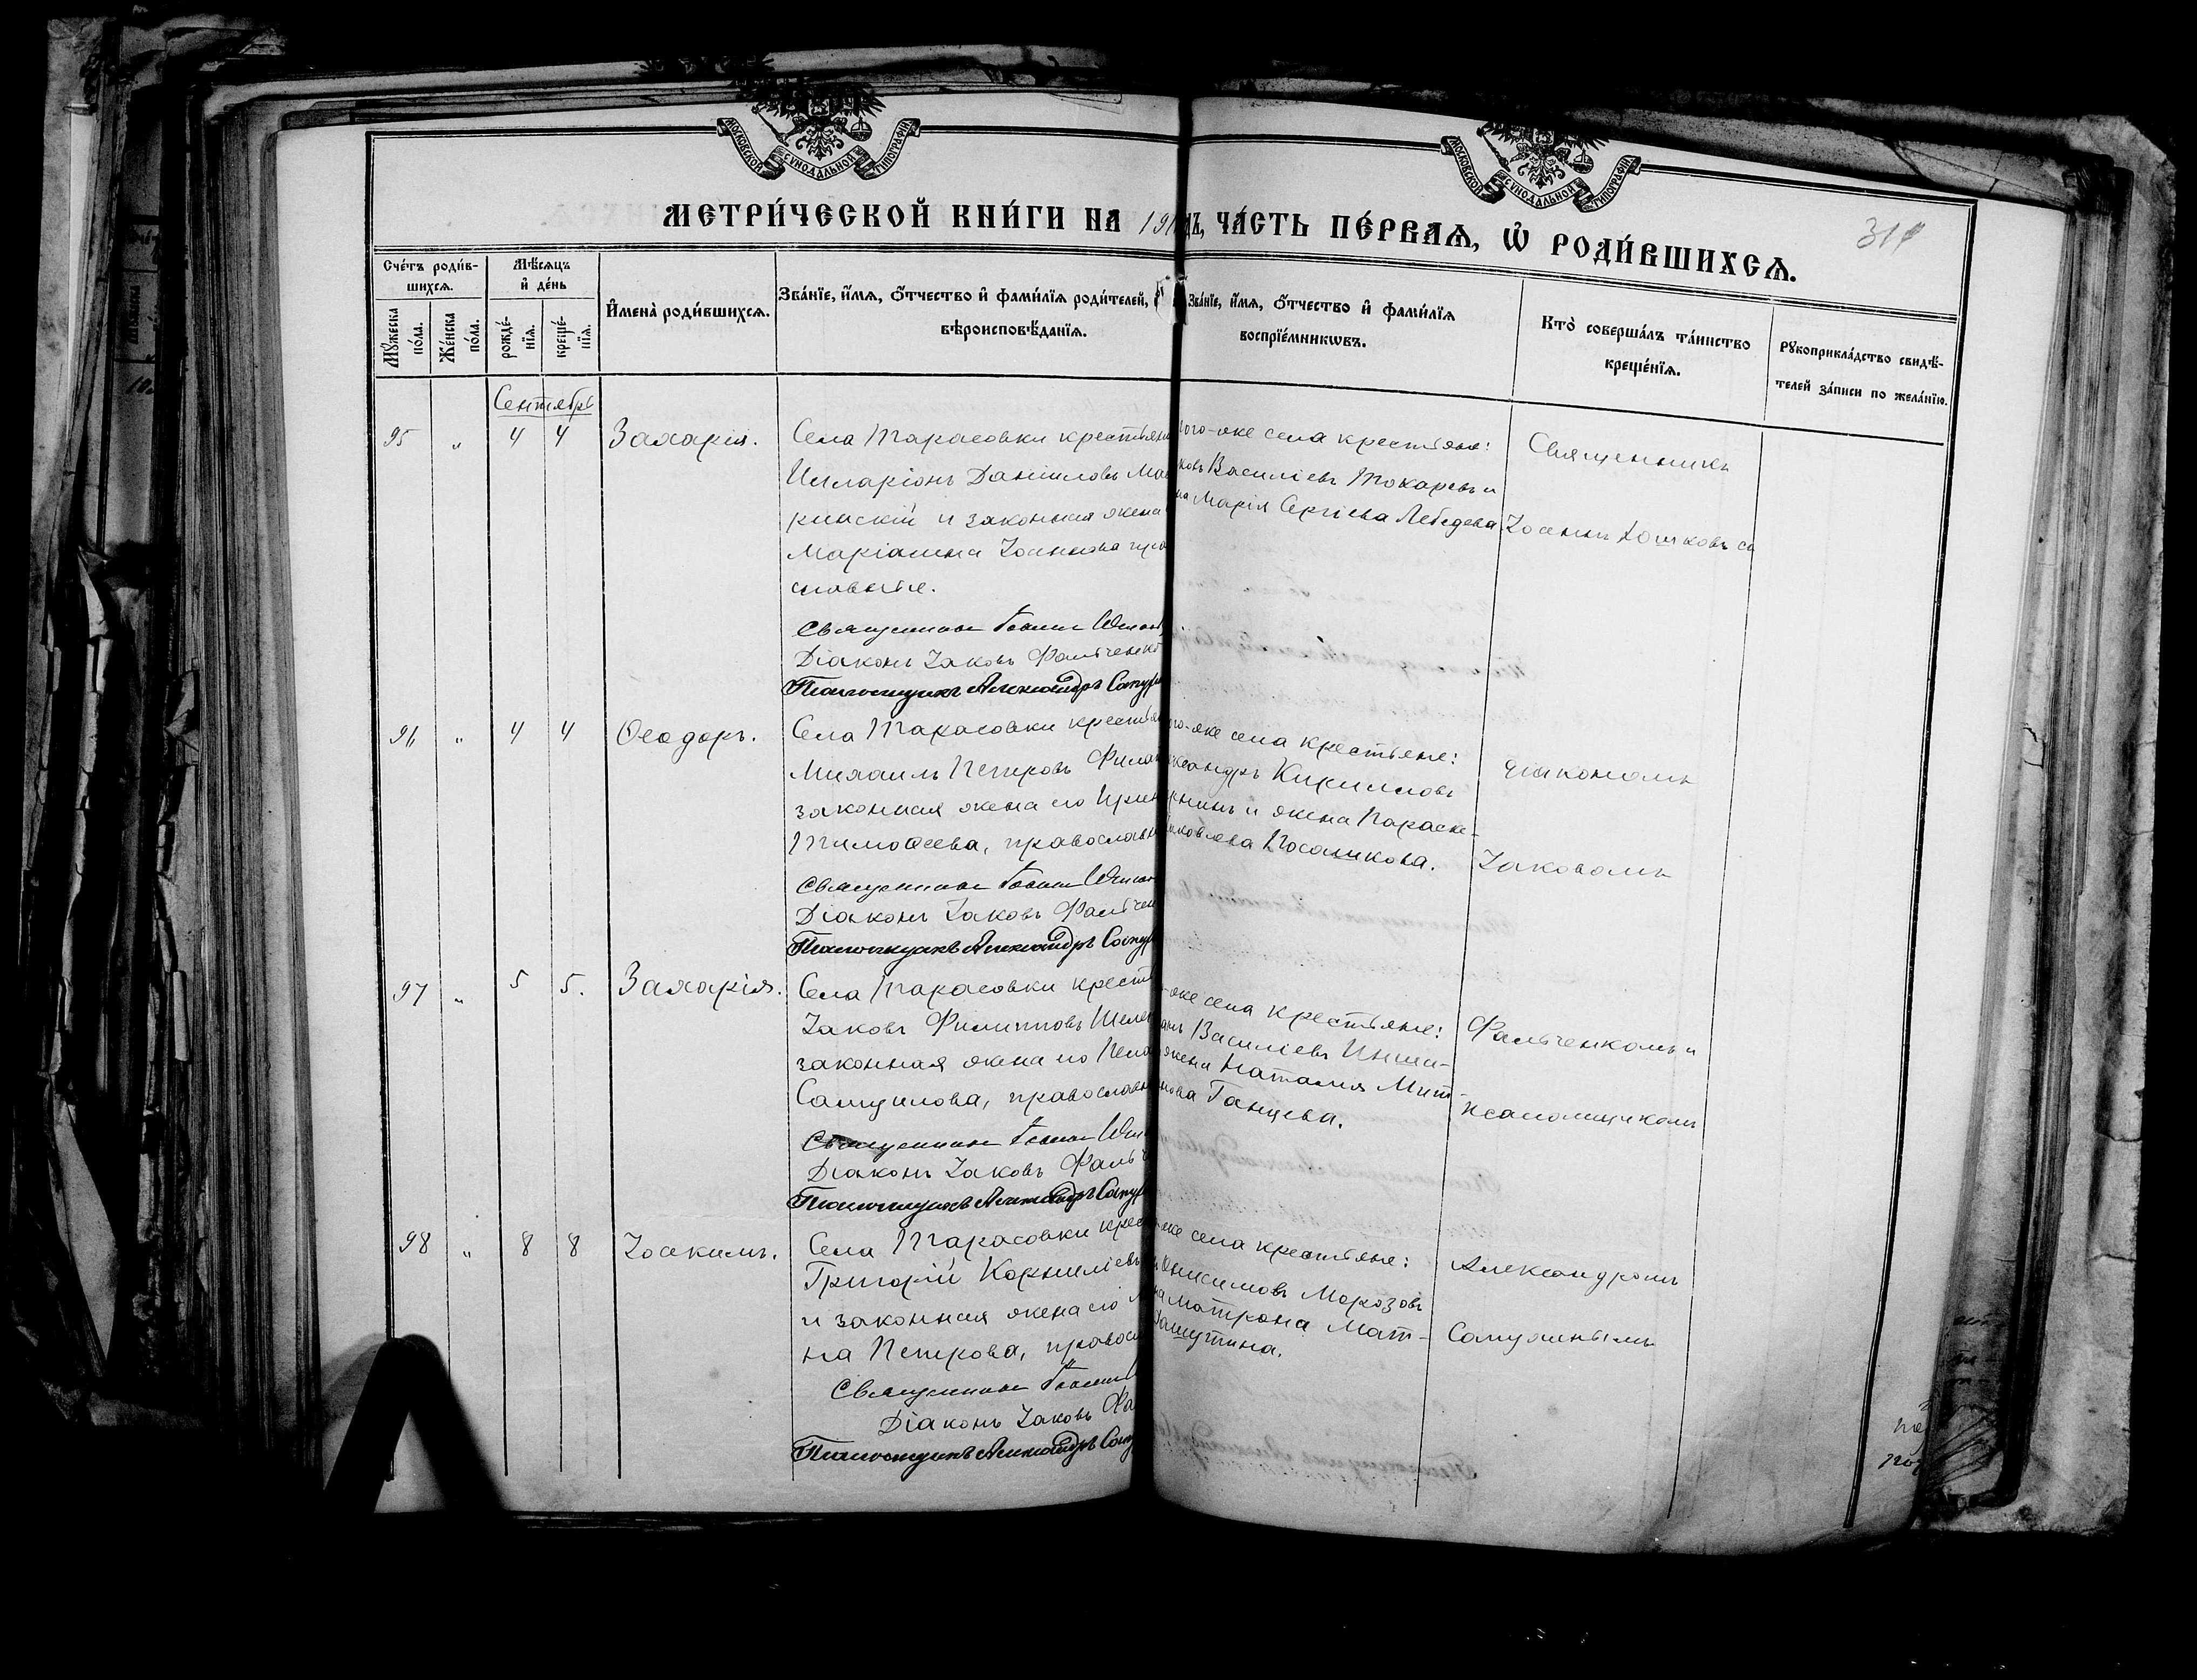 МОСКОВСКОЙ СѴНОДАЛЬНОЙ ТИПОГРАФІИ
МОСКОВСКОЙ СѴНОДАЛЬНОЙ ТИПОГРАФІИ
МЕТРИ́ЧЕСКОЙ КНИ́ГИ НА 191 ДЪ, ЧА́СТЬ ПЕ́РВАѦ, Ѡ҆ РОДИ́ВШИХСѦ.
Сче́тъ роди́в-
шихсѧ.
Мꙋ́жеска по́ла.
Же́нска по́ла.
Мѣ́сѧцъ
и҆ де́нь
рожде́-
нїѧ.
креще́-
нїѧ.
И҆мена̀ роди́вшихсѧ.
Зва́нїе, и҆́мѧ, ѻ҆́тчество и҆ фами́лїѧ роди́телей,
вѣроисповѣ́данїѧ.
Зва́нїе, и҆́мѧ, ѻ҆́тчество и҆ фами́лїѧ
воспрїе́мникѡвъ.
Кто̀ соверша́лъ та́инство
креще́нїѧ.
Рꙋкоприкла́дство свидѣ́-
телей за́писи по жела́нїю.
Сентябрь
95 " 4 4 Захарія.
Села Тарасовки крестьяни
Илларіонъ Даніиловъ Ма
ринскій и законная жена
Маріанна Іоаннова пра
славные.
Священникъ Іоаннъ
Діаконъ Іаковъ Фальченко
Псаломщикъ Александръ
ого-же села крестьяне:
ковъ Василіевъ Токаревъ и
на Марія Сергіева Лебедева
Священникъ
Іоаннъ Юшковъ съ
96 " 4 4 Ѳеодоръ.
Села Тарасовки крестья
Михаилъ Петровъ Фила
законная жена его Ирин
Тимоѳеева, православн
Священникъ Іоаннъ
Діаконъ Іаковъ Фальчен
Псаломщикъ Александръ
го-же села крестьяне:
ександръ Кирилловъ
и жена Параске-
Іаковлева Посашкова.
діакономъ
Іаковомъ
97 " 5 5. Захарія.
Села Тарасовки крестья
Іаковъ Филипповъ Шеле
законная жена его Пела
Самуилова, православн
Священникъ Іоаннъ
Діаконъ Іаковъ Фальч
Псаломщикъ Александръ
-же села крестьяне:
Василіевъ
жена Наталия Мит-
нова Ганцева.
Фальченкомъ и
псаломщикомъ
98 " 8 8 Іоакимъ.
Села Тарасовки крес
Григорій Корниліевъ
и законная жена его
на Петрова, правосл
Священникъ Іоаннъ
Діаконъ Іаковъ Фа
Псаломщикъ Александръ
же села крестьяне:
Онисимовъ Морозовъ
на Матрона Мат-
Александромъ